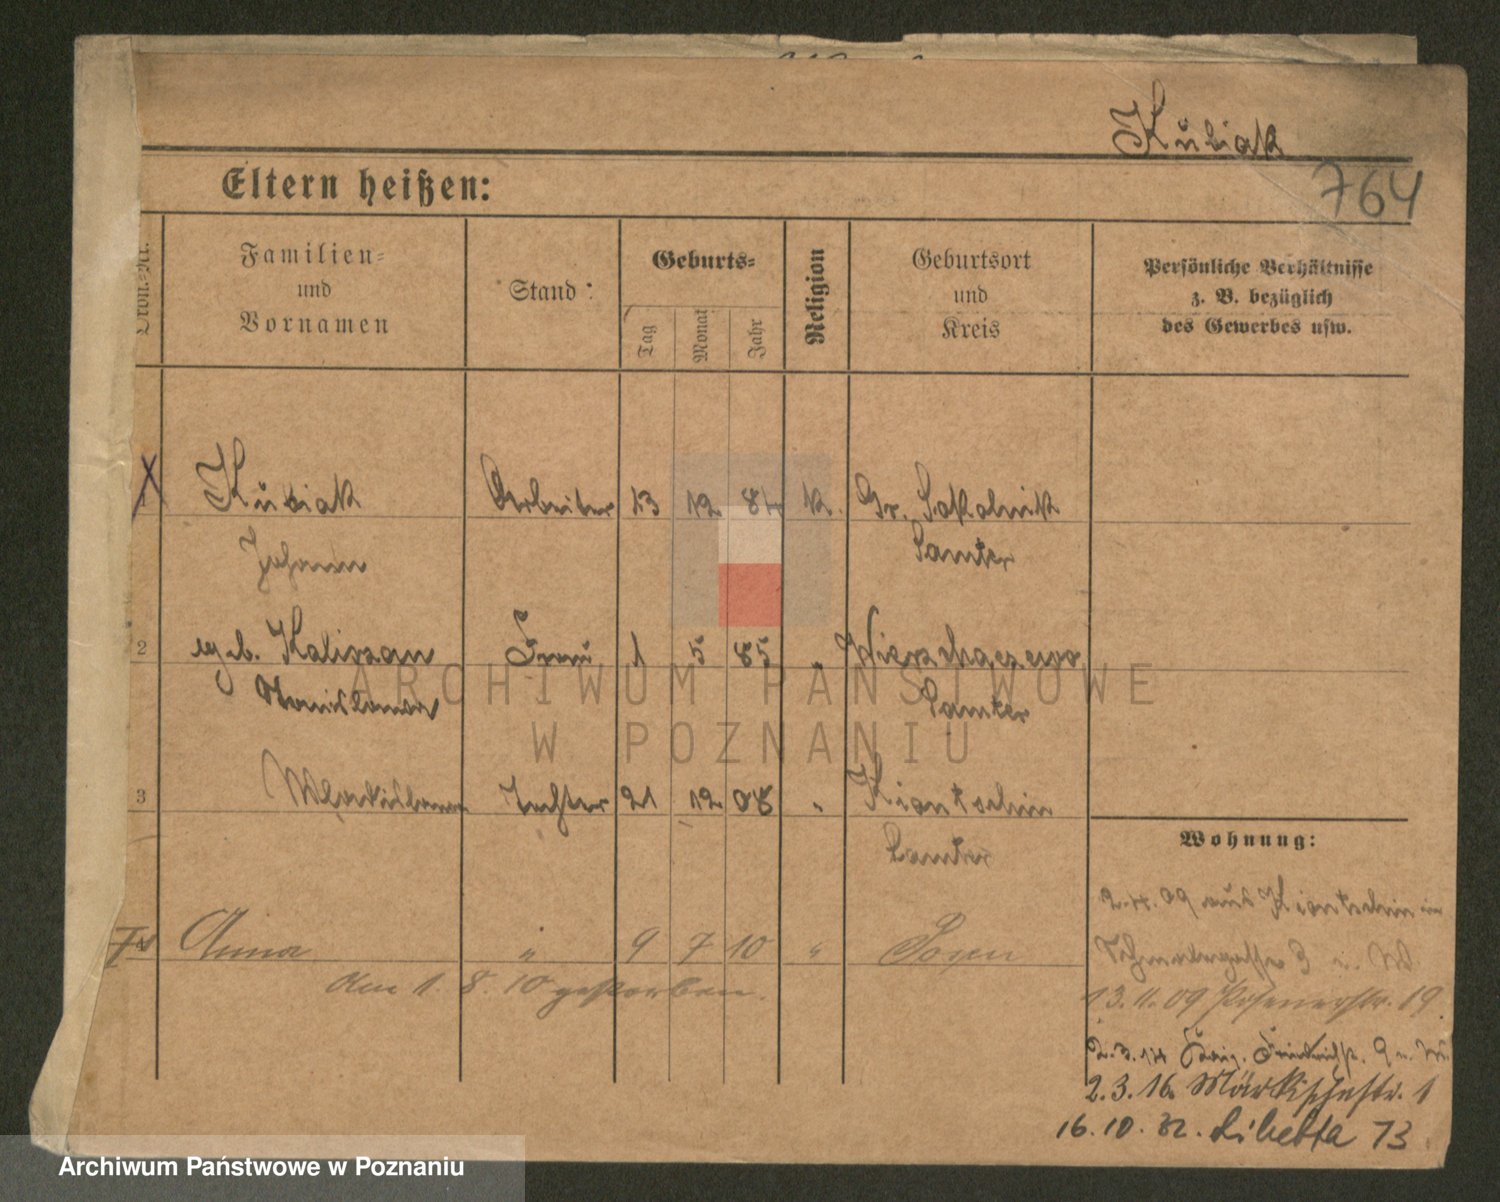 Kubiak
764
Eltern heißen:
Familien=
und
Vornamen
Stand
Geburts=
Tag
Monat
Jahr
Religion
Geburtsort
und
Kreis
Persönliche Verhältnisse
z. B. bezüglich
des Gewerbes usw.
Kubiak Arbeiter 13 12 84 k. Gr. Sokolnik
Johann Samter
2 geb. Kaliszan Frau 1 5 85 " Wierzchaczewo
Stanislawa Samter
3 Wladislawa Tochter 21 12 08 " Kiontschin
Samter
Wohnung:
2.4.09 aus Kiontschin in
4 Anna " 9 7 10 " Posen
3 u. W
am 1. 8. 10 gestorben.
13.11.09 Posenerstr. 19.
2.3.14 Friedrichstr. 9
2.3.16. Märkischestr. 1
16.10.32. Libelta 13
ARCHIWUM PAŃSTWOWE
W POZNANIU
Archiwum Państwowe w Poznaniu